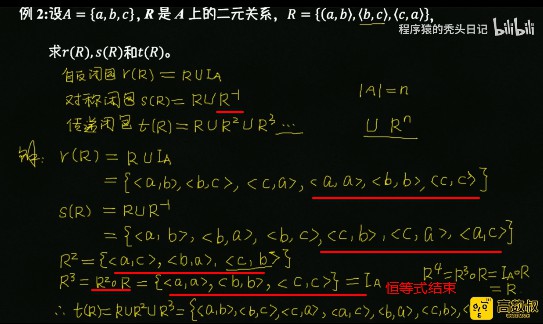 例 2:设A = {a, b, c}, R 是 A 上的二元关系, R = {⟨a, b⟩, ⟨b, c⟩, ⟨c, a⟩},
程序猿的秃头日记 bilibili
求r(R), s(R) 和t(R)。
自反闭包 r(R) = R∪I_A
对称闭包 S(R) = R∪R⁻¹ |A|=n
传递闭包 t(R) = R∪R²∪R³ ... ∪ Rⁿ
解: r(R) = R∪I_A
= {<a,b>, <b,c>, <c,a>, <a,a>, <b,b>, <c,c>}
S(R) = R∪R⁻¹
= {<a,b>, <b,a>, <b,c>, <c,b>, <c,a>, <a,c>}
R² = {<a,c>, <b,a>, <c,b>}
R³ = R²∘R = {<a,a>, <b,b>, <c,c>} = I_A 恒等式结束 R⁴=R³∘R=I_A∘R
= R
∴ t(R) = R∪R²∪R³ = {<a,b>, <b,c>, <c,a>, <a,c>, <b,a>, <c,b>,
高数叔